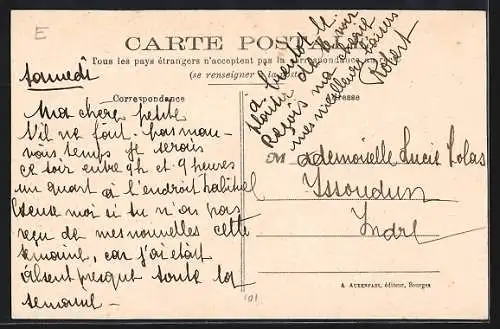 E
CARTE POSTALE
Tous les pays étrangers n'acceptent pas la correspondance au
(se renseigner à la poste)
Correspondance
Adresse
Samedi
Ma chère petite
S'il ne fait pas mau-
vais temps je serais
ce soir entre 9h et 9 heures
un quart à l'endroit habituel
Excuse moi si tu n'as pas
reçu de mes nouvelles cette
semaine, car j'ai était
absent presque toute la
semaine -
à bientôt le
plaisir de te voir
Reçois ma chérie
mes meilleurs baisers
Robert
Mademoiselle Lucie Colas
Issoudun
Indre
A AUXENFANS, éditeur, Bourges
101